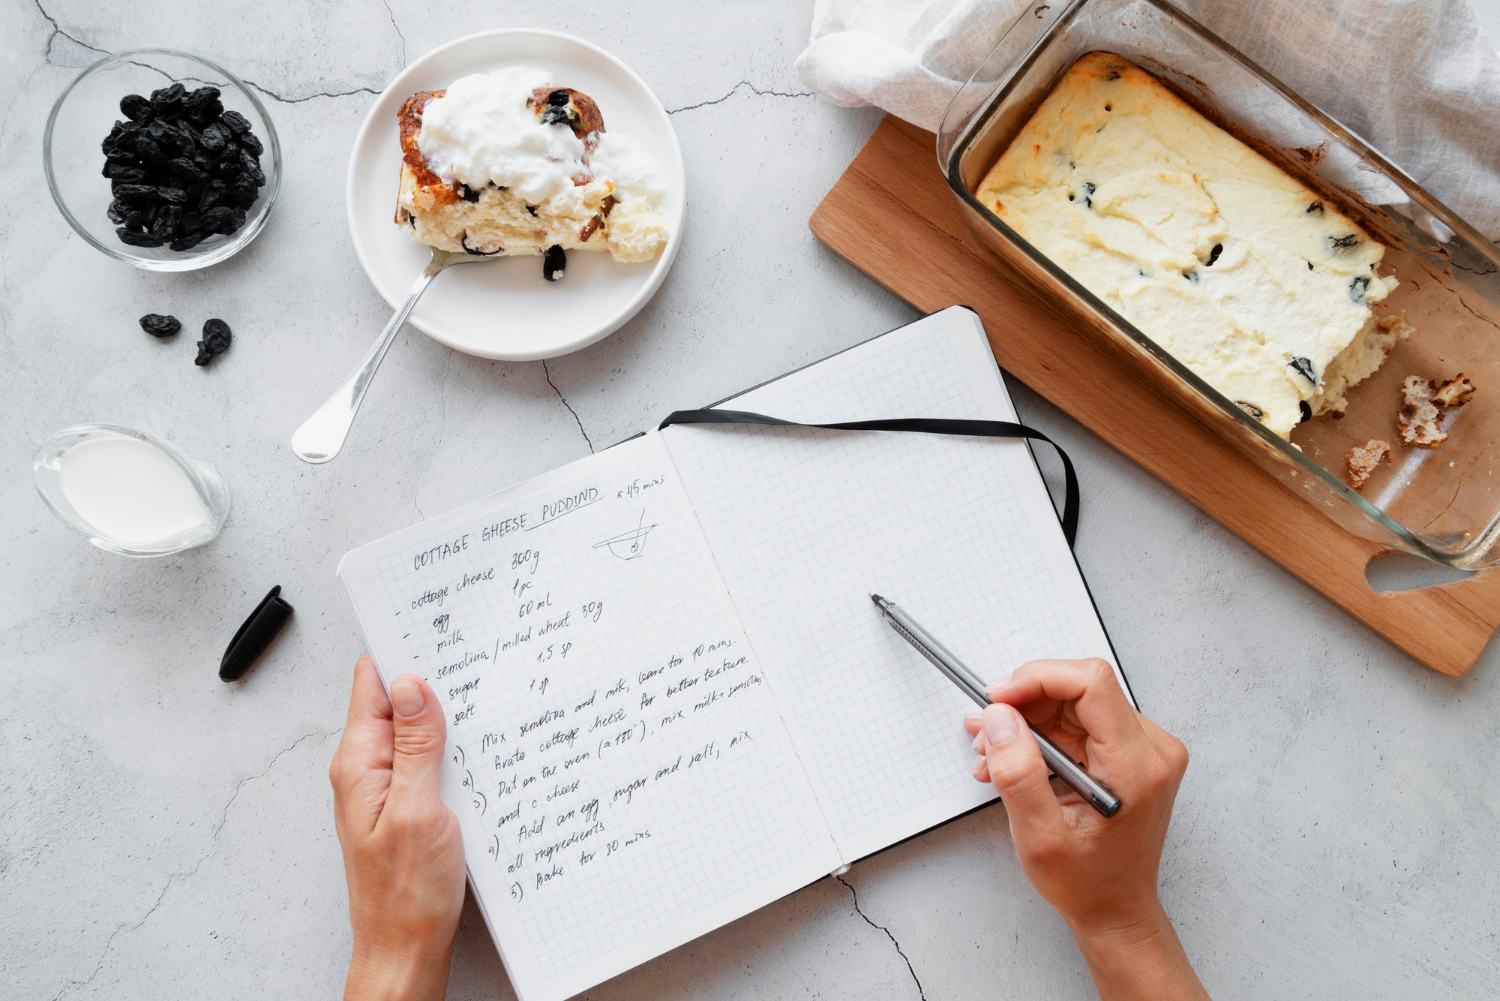 COTTAGE GHEESE PUDDIND ≈ 45 mins
- cottage cheese 300g
- egg 1 pc
- milk 60 ml
- semolina / milled wheat 30g
sugar 1,5 sp
salt 1 sp
1) Mix semolina and milk, leave for 10 mins.
2) Grate cottage cheese for better texture
3) Put on the oven (≈ 180°), mix milk + semolina
and c cheese.
4) Add an egg, sugar and salt, mix
all ingredients
5) Bake for 30 mins